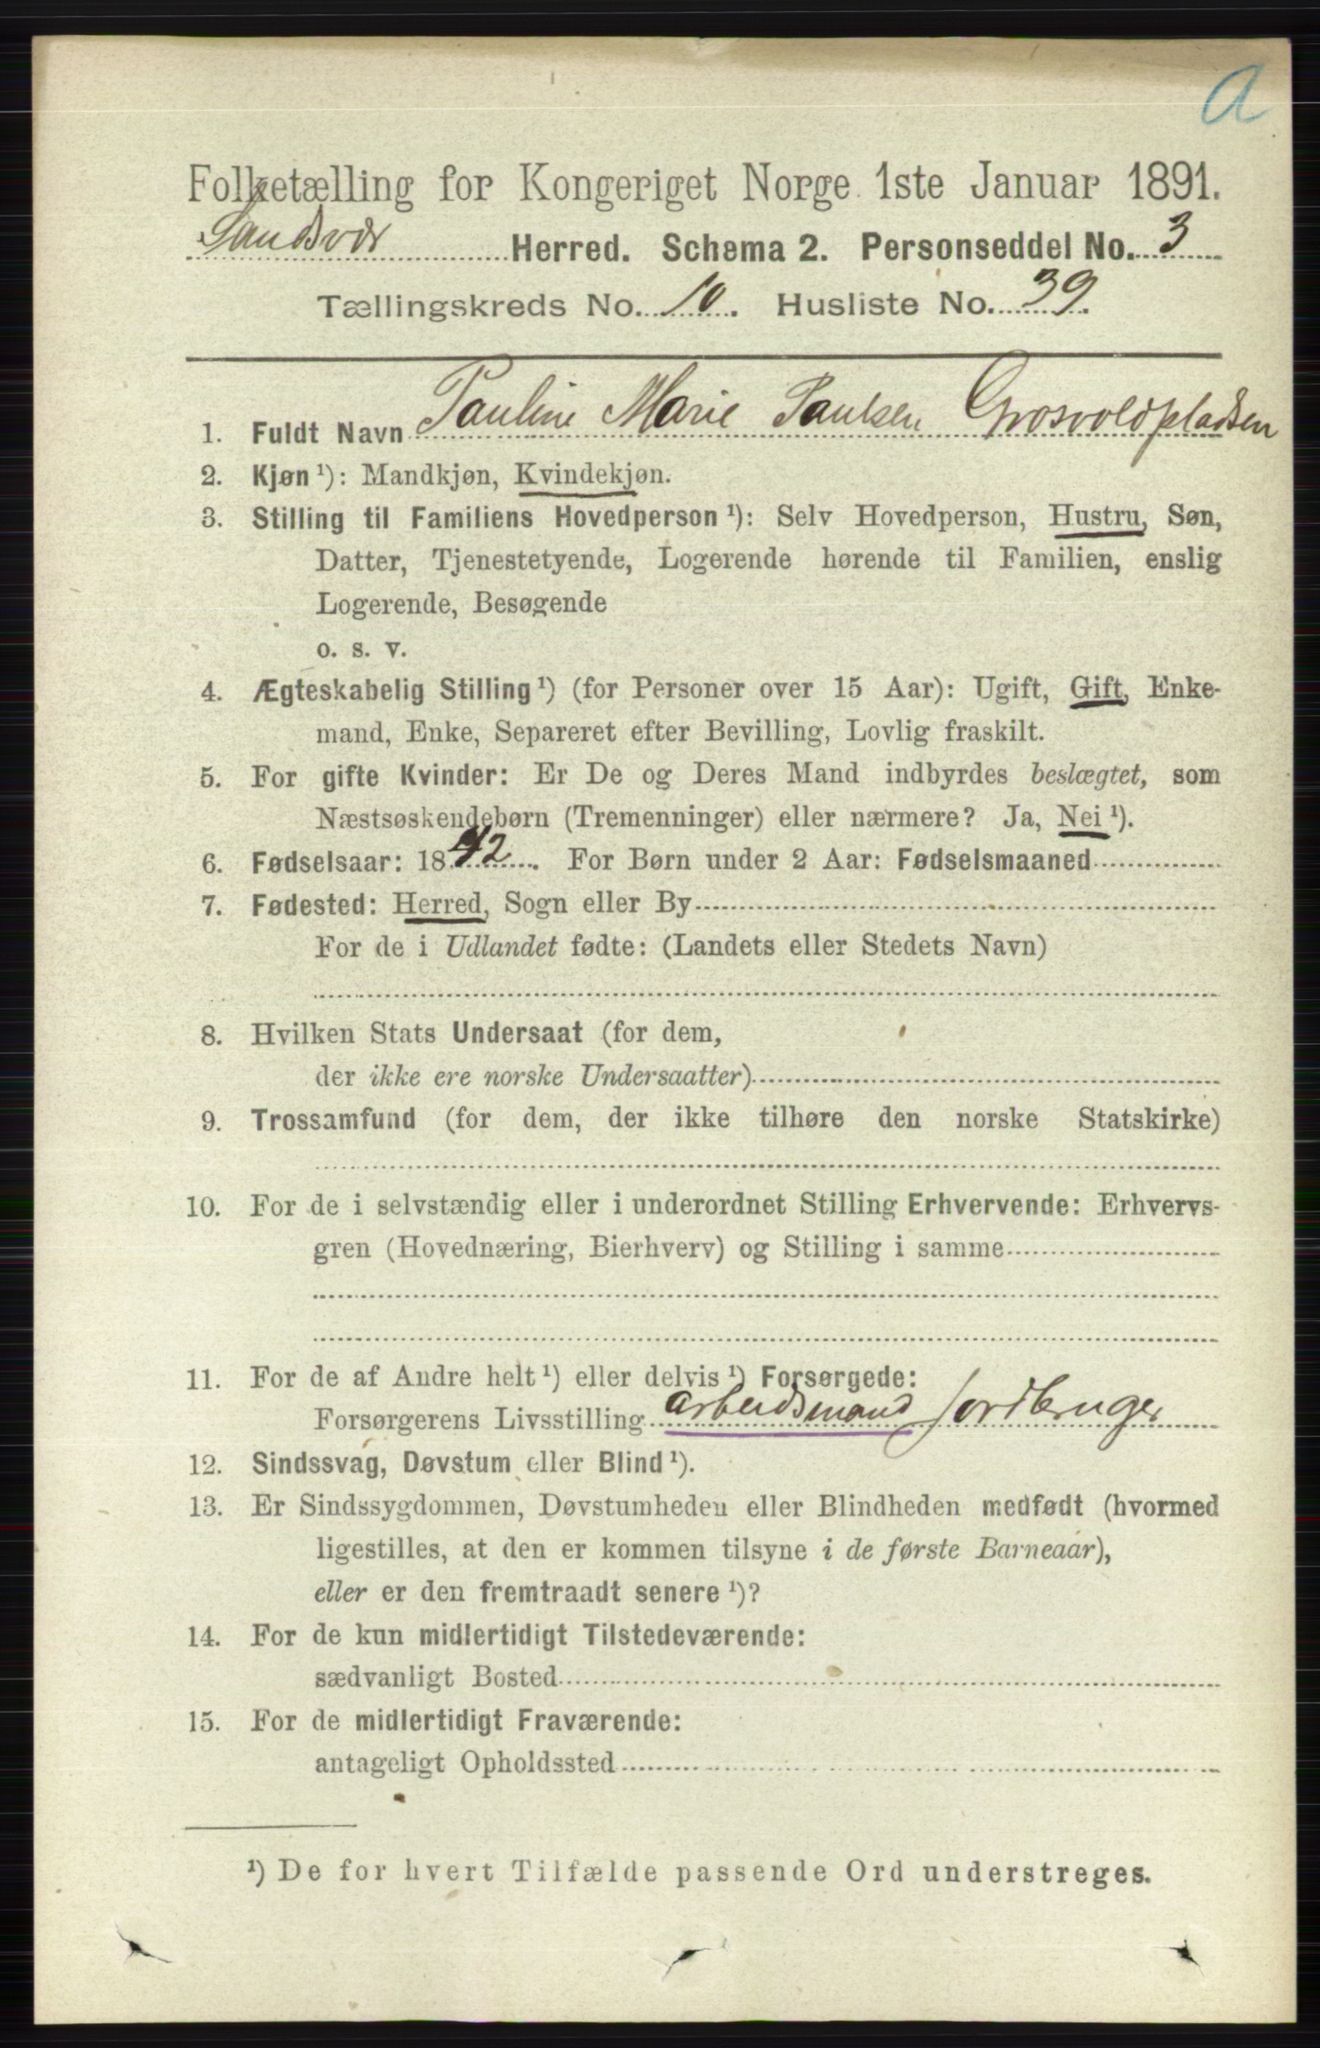 a
Folketælling for Kongeriget Norge 1ste Januar 1891.
Sandsvær Herred. Schema 2. Personseddel No. 3
Tællingskreds No. 10. Husliste No. 39.
1. Fuldt Navn Pauline Marie Paulsen Grosvoldpladsen
2. Kjøn ¹): Mandkjøn, Kvindekjøn.
3. Stilling til Familiens Hovedperson ¹): Selv Hovedperson, Hustru, Søn,
Datter, Tjenestetyende, Logerende hørende til Familien, enslig
Logerende, Besøgende
o. s. v.
4. Ægteskabelig Stilling ¹) (for Personer over 15 Aar): Ugift, Gift, Enke-
mand, Enke, Separeret efter Bevilling, Lovlig fraskilt.
5. For gifte Kvinder: Er De og Deres Mand indbyrdes beslægtet, som
Næstsøskendebørn (Tremenninger) eller nærmere? Ja, Nei ¹).
6. Fødselsaar: 1842. For Børn under 2 Aar: Fødselsmaaned
7. Fødested: Herred, Sogn eller By
For de i Udlandet fødte: (Landets eller Stedets Navn)
8. Hvilken Stats Undersaat (for dem,
der ikke ere norske Undersaatter)
9. Trossamfund (for dem, der ikke tilhøre den norske Statskirke)
10. For de i selvstændig eller i underordnet Stilling Erhvervende: Erhvervs-
gren (Hovednæring, Bierhverv) og Stilling i samme
11. For de af Andre helt ¹) eller delvis ¹) Forsørgede:
Forsørgerens Livsstilling arbeidsmand jordbruger
12. Sindssvag, Døvstum eller Blind ¹).
13. Er Sindssygdommen, Døvstumheden eller Blindheden medfødt (hvormed
ligestilles, at den er kommen tilsyne i de første Barneaar),
eller er den fremtraadt senere ¹)?
14. For de kun midlertidigt Tilstedeværende:
sædvanligt Bosted
15. For de midlertidigt Fraværende:
antageligt Opholdssted
¹) De for hvert Tilfælde passende Ord understreges.